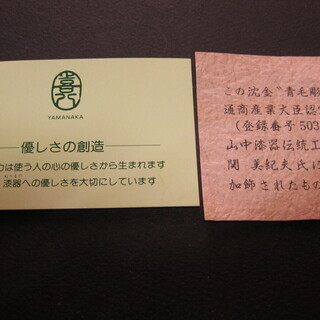 YAMANAKA
優しさの創造
は使う人の心の優しさから生まれます
漆器への優しさを大切にしています
この沈金〝青毛彫
通商産業大臣認定
(登録番号503
山中漆器伝統工
関 美紀夫氏に
加飾されたもの